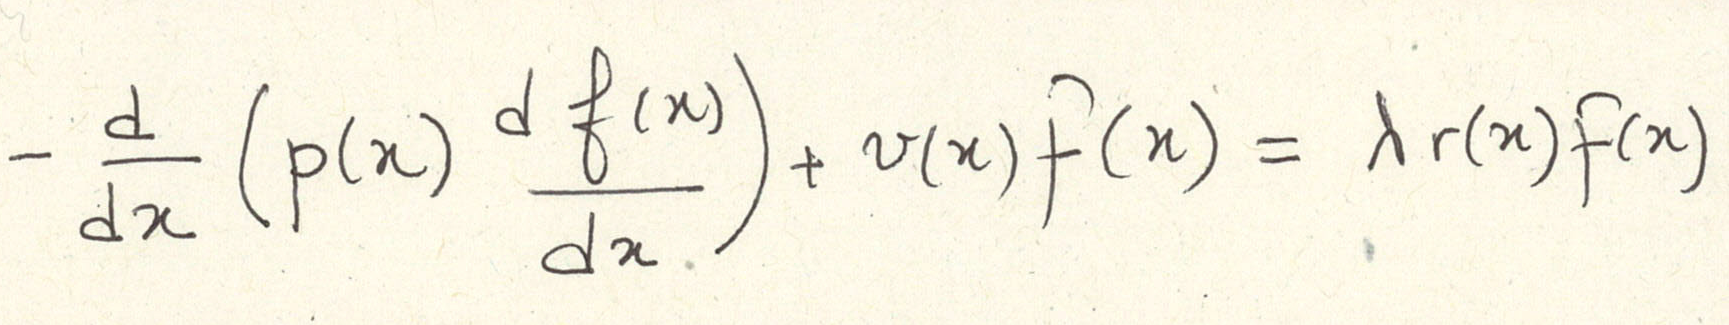 -\frac{d}{dx}\left(p(x)\frac{d f(x)}{dx}\right)+v(x)f(x)=\lambda r(x)f(x)